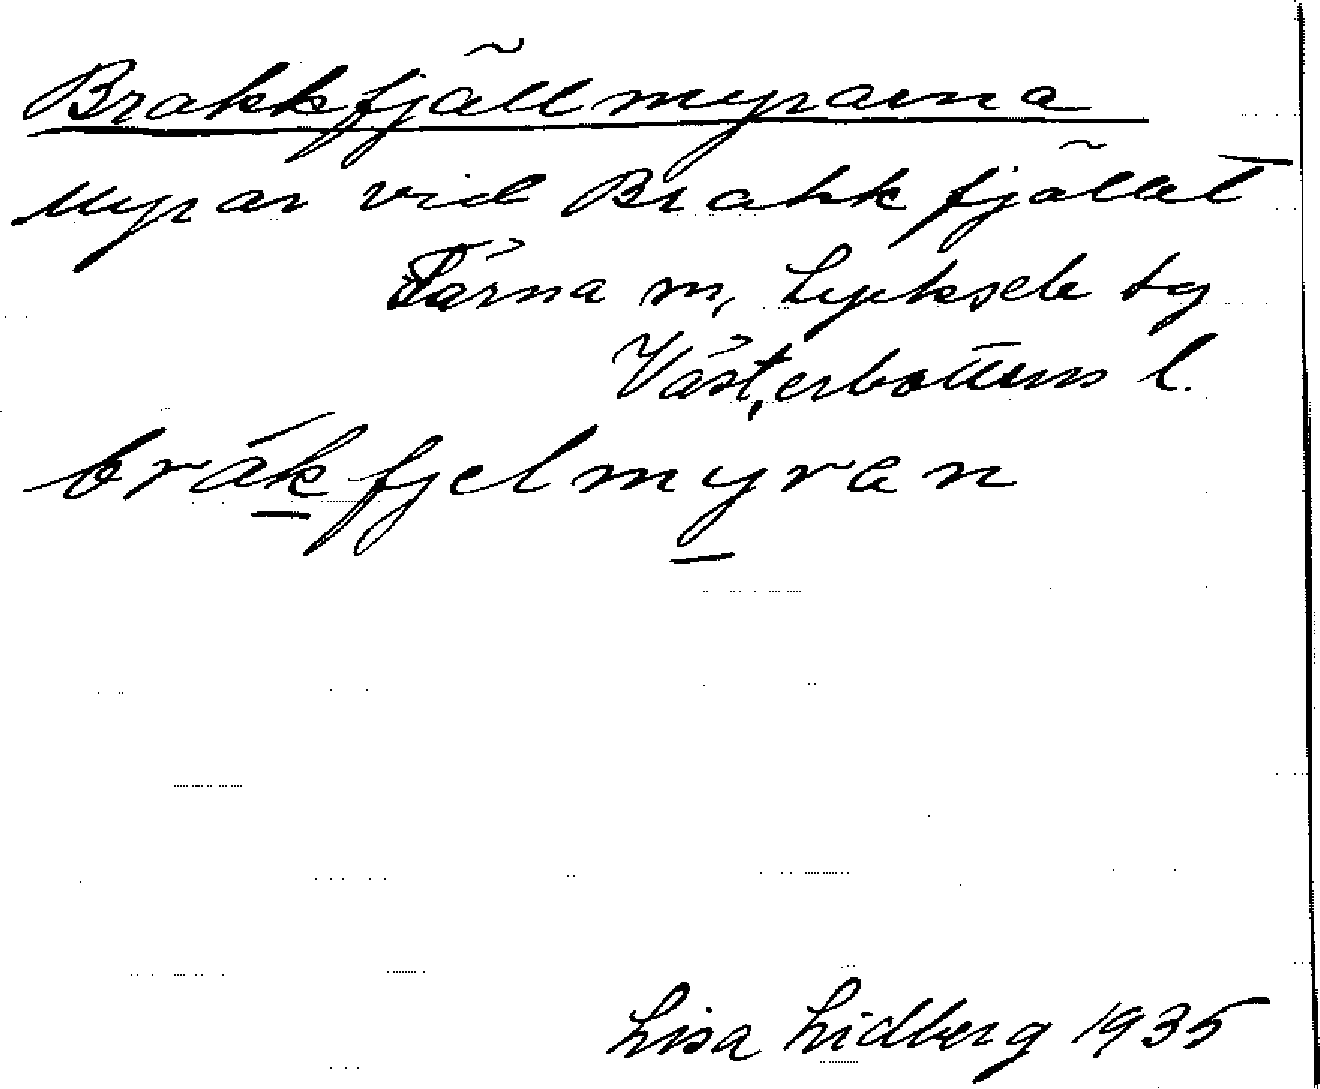 Brakkfjällmyrarna
Myrar vid Brakkfjället
Tärna sn, Lycksele tg
Västerbottens l.
bràkfjelmyran
Lisa Lidberg 1935